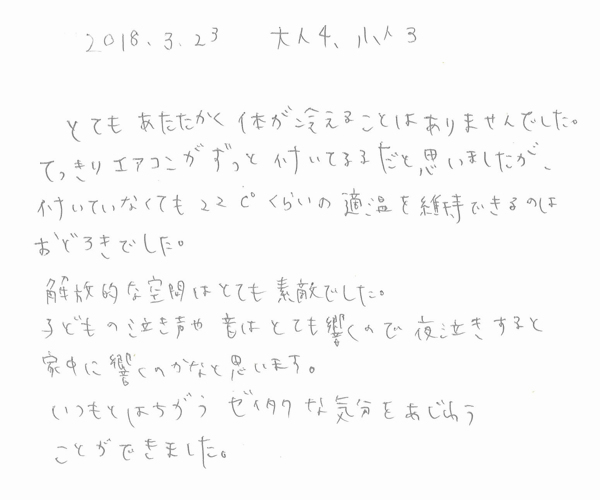 2018.3.23 大人4、小人3
とても あたたかく 体が冷えることはありませんでした。
てっきり エアコンがずっと 付いてるるだと思いましたが、
付いていなくても 22 C° くらいの 適温を維持できるのは
おどろきでした。
解放的な空間はとても素敵でした。
子どもの泣き声や 音はとても響くので夜泣きすると
家中に響くのかなと思います。
いつもとはちがう ゼイタクな気分をあじわう
ことができました。